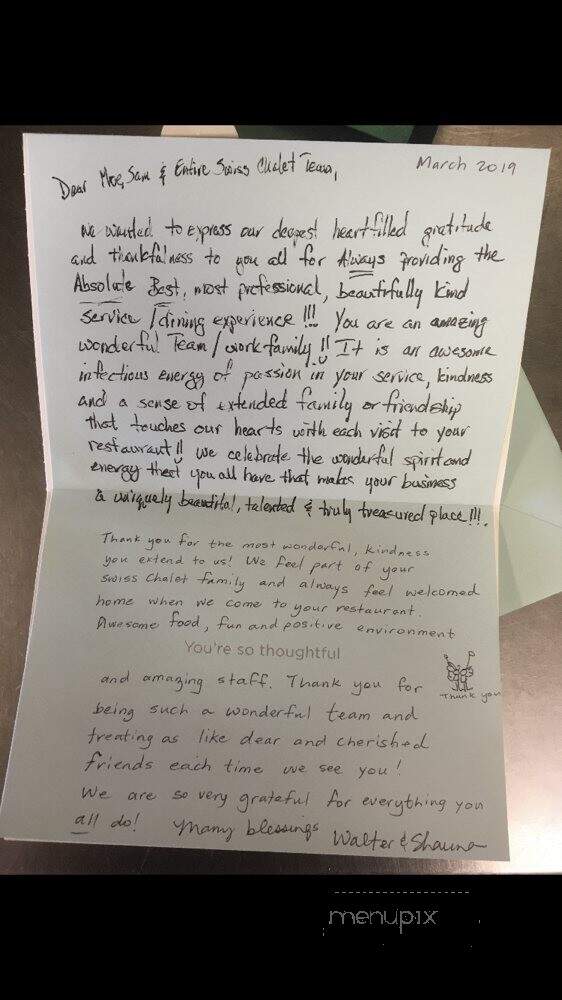 March 2019
Dear Moe, Sam & Entire Swiss Chalet Team,
We wanted to express our deepest heartfilled gratitude
and thankfulness to you all for Always providing the
Absolute Best, most professional, beautifully kind
service / dining experience!!! You are an amazing
wonderful Team / work family!! It is an awesome
infectious energy of passion in your service, kindness
and a sense of extended family or friendship
that touches our hearts with each visit to your
restaurant!! We celebrate the wonderful spirit and
energy that you all have that makes your business
a uniquely beautiful, talented & truly treasured place!!!.
Thank you for the most wonderful, kindness
you extend to us! We feel part of your
Swiss Chalet family and always feel welcomed
home when we come to your restaurant.
Awesome food, fun and positive environment
You're so thoughtful
and amazing staff. Thank you for
Thank you
being such a wonderful team and
treating as like dear and cherished
friends each time we see you!
We are so very grateful for everything you
all do! Many blessings Walter & Shauna
menupix